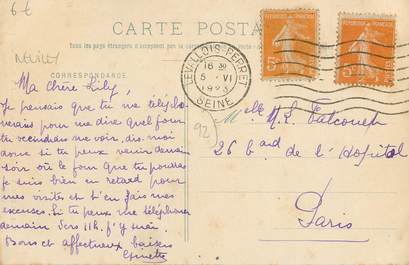 6€
CARTE POSTALE
Tous les pays étrangers n'acceptent pas
NEUILLY
CORRESPONDANCE
LEVALLOIS-PERRET
16 30
5 VI
SEINE
92
Ma chère Lily,
Je pensais que tu me télépho-
nerais pour me dire quel jour
tu viendrais me voir, dis-moi
donc si tu peux venir demain
soir où le jour que tu pourras
je suis bien en retard pour
mes visites et t'en fais mes
excuses. Si tu peux me téléphoner
demain vers 11h. j'y serai.
Bons et affectueux baisers
Ginette
Mlle M. L. Falconet
26 bard de l'Hopital
Paris